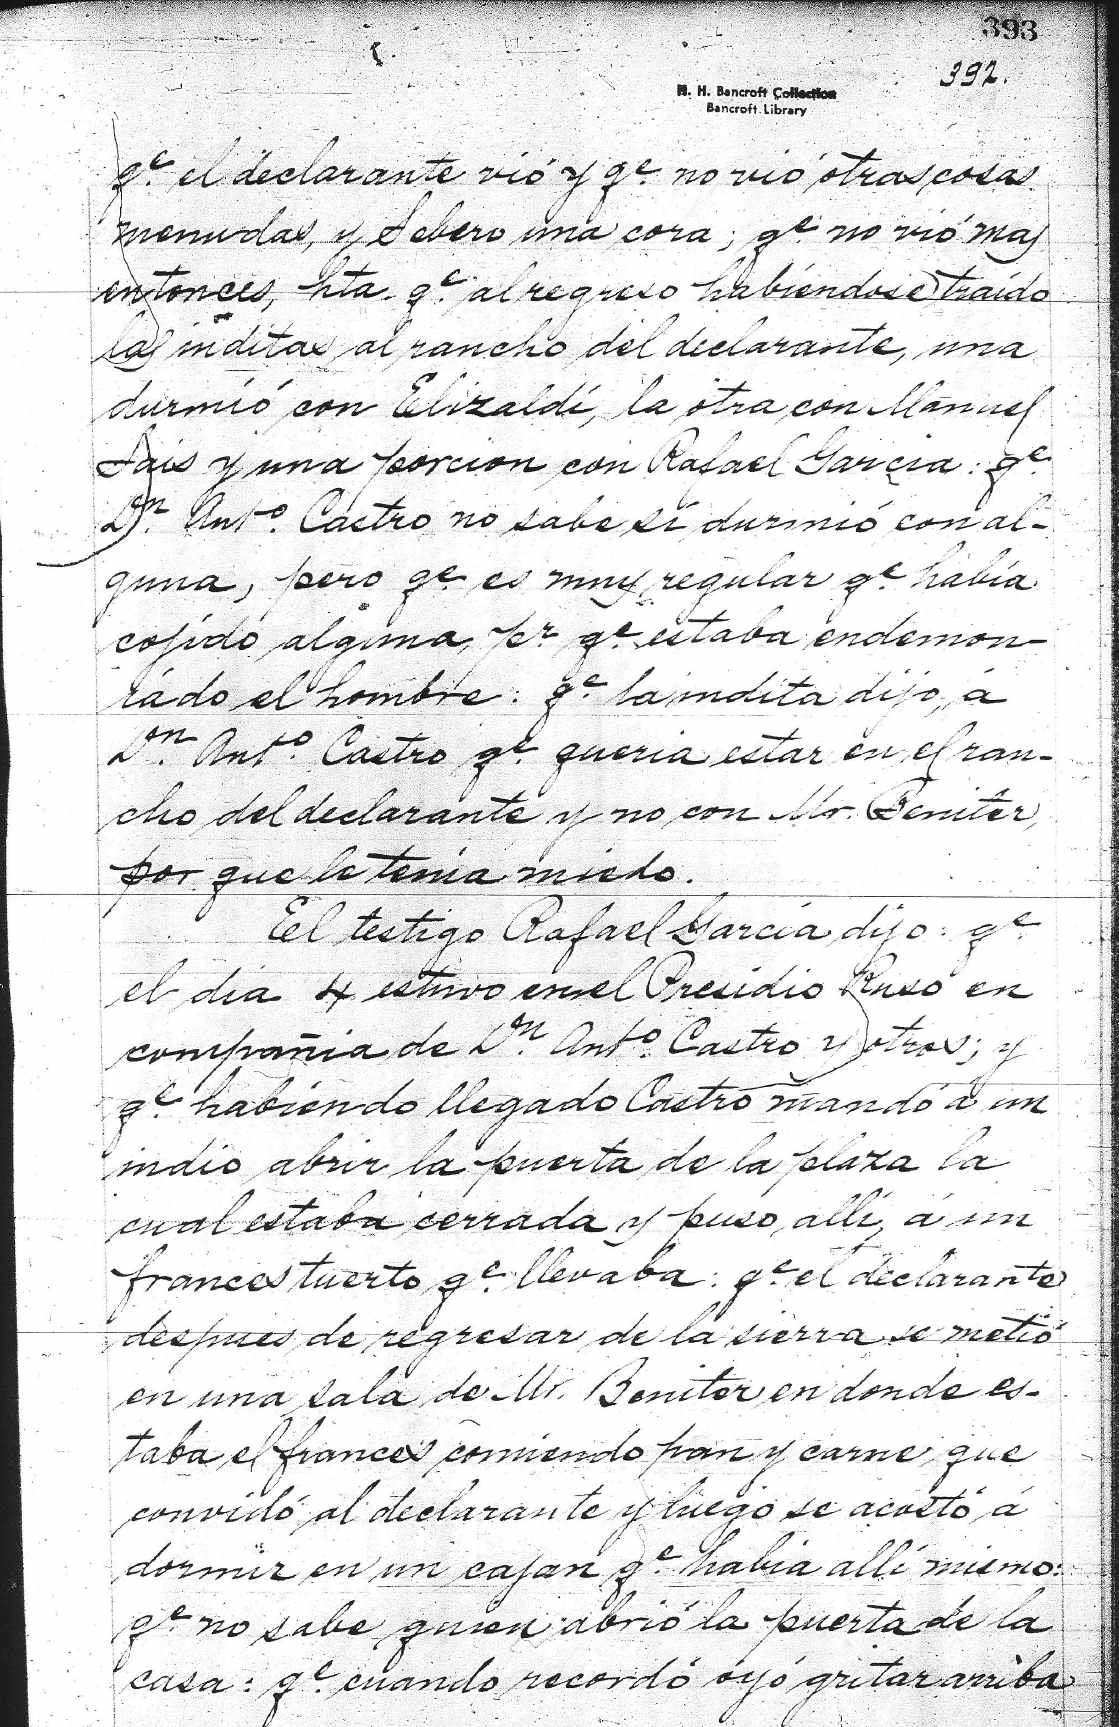 393
392.
H. H. Bancroft Collection
Bancroft Library
qe. el declarante vió y qe. no vió otras cosas
menudas, y Sebero una cora; qe. no vió mas
entonces, hta. qe. al regreso habiéndose traido
las inditas al rancho del declarante, una
durmió con Elizaldí, la otra con Manuel
y una porcion con Rafael Garcia: qe.
Dn. Anto. Castro no sabe si durmió con al-
guna, pero qe. es muy regular qe. habia
cojido alguna, pr. qe. estaba endemon-
iado el hombre: qe. la indita dijo, á
Dn. Anto. Castro qe. queria estar en el ran-
cho del declarante y no con Mr. Beniter,
por que le tenia miedo.
El testigo Rafael Garcia dijo: qe.
el dia 4 estuvo en el Presidio Ruso en
compañia de Dn. Anto. Castro y otros; y
qe. habiendo llegado Castro mandó á un
indio abrir la puerta de la plaza la
cual estaba cerrada y puso, allí, á un
frances tuerto qe. llevaba: qe. el declarante
despues de regresar de la sierra se metió
en una sala de Mr. Beniter en donde es-
taba el frances comiendo pan y carne, que
convidó al declarante y luego se acostó á
dormir en un cajan qe. habia allí mismo:
qe. no sabe quien abrió la puerta de la
casa: qe. cuando recordó oyó gritar arriba